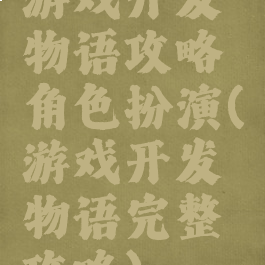 游戏开发
物语攻略
角色扮演(
游戏开发
物语完整
攻略)